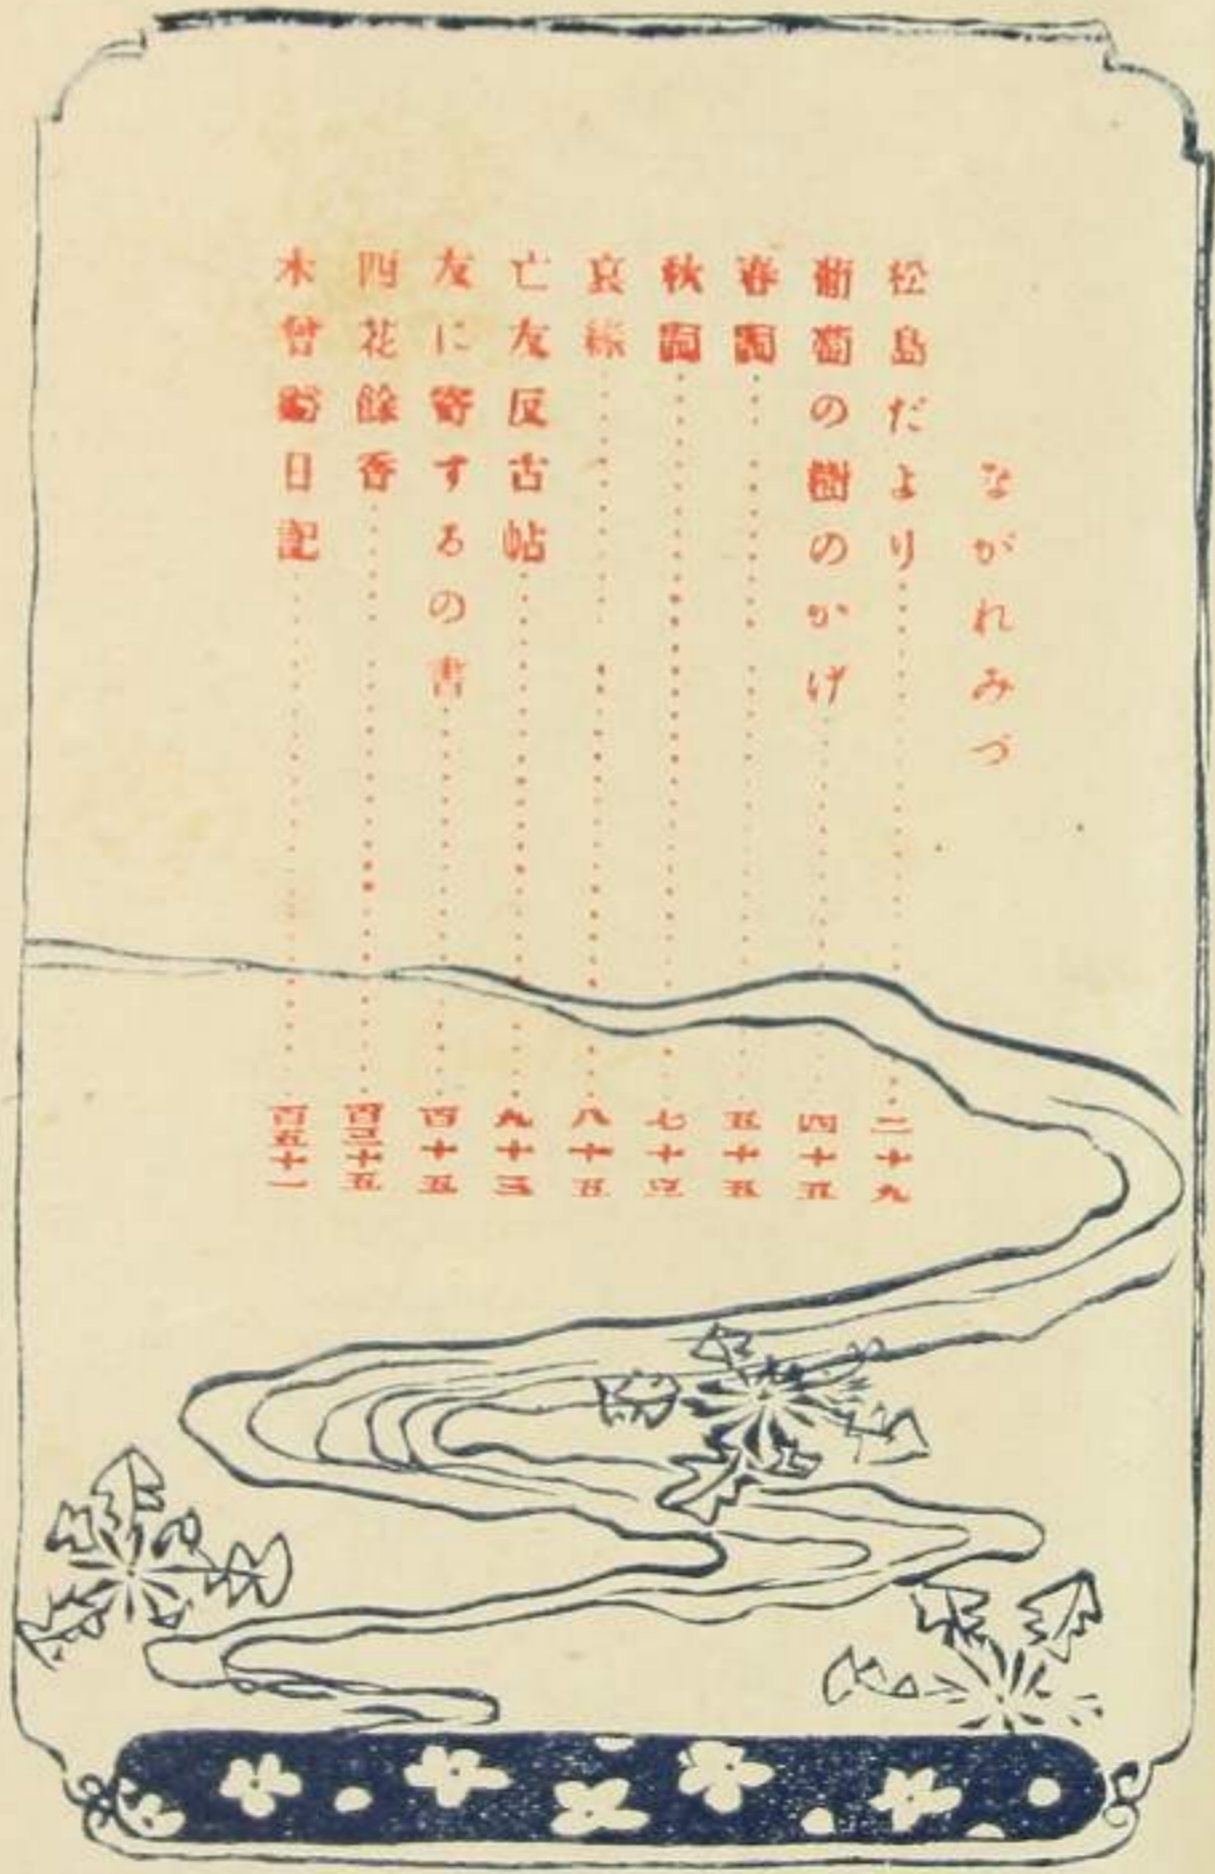 ながれみづ
松島だより……二十九
葡萄の樹のかげ……四十五
春詞……五十五
秋詞……七十四
哀縁……八十五
亡友反古帖……九十三
友に寄するの書……百十五
四花餘香……百三十五
木曾谿日記……百五十一